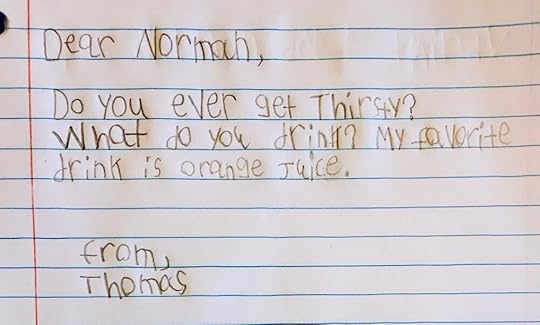 Dear Norman,
Do you ever get Thirsty?
What do you drink? My favorite
drink is orange Juice.
from,
Thomas